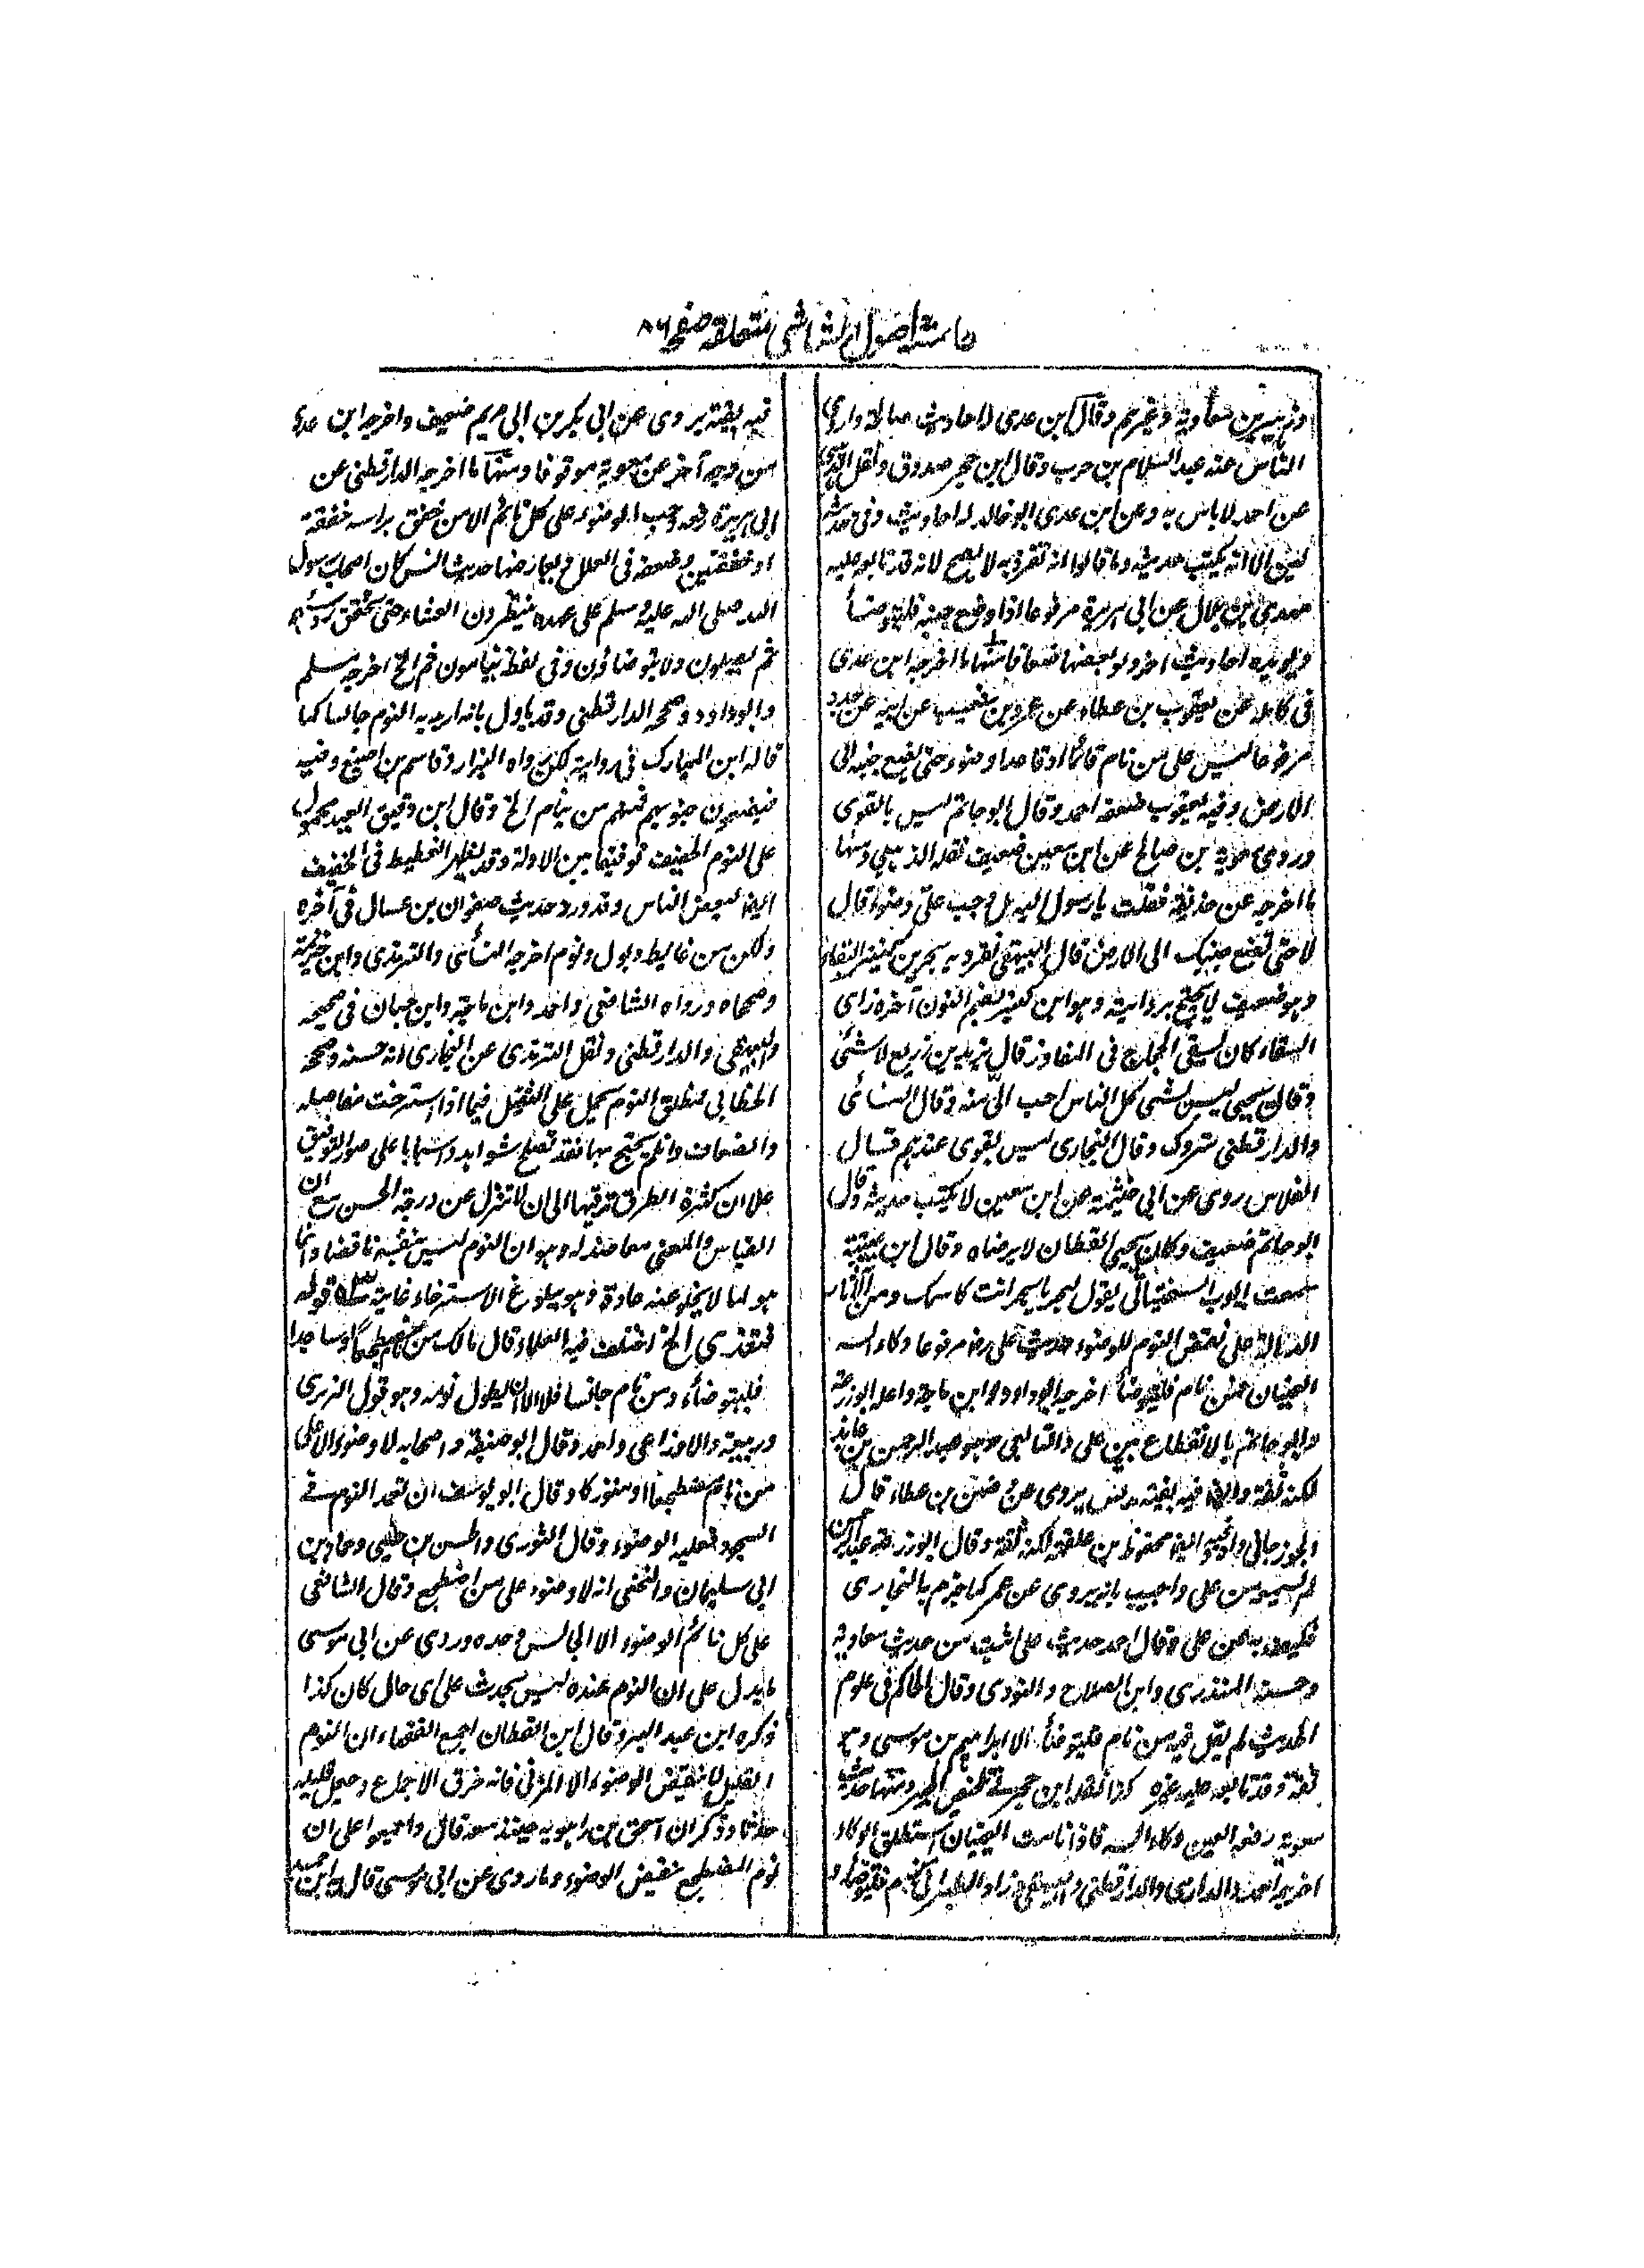 حاشية اصول الشاشی متعلقه صفحه ٨٦
وزہیر بن معاوية وغیرہم وقال ابن عدی له احادیث صالحة واروی
الناس عنه عبد السلام بن حرب وقال ابن حجر صدوق ونقل
عن احمد لا باس به وعن ابن عدی ابو خالد له احادیث وفی حدیثه
لین الا انه یکتب حدیثه وما قالوا انه تفرد به لا یصح لانه قد تابعه علیه
مہدی بن ہلال عن ابی ہریرة مرفوعا اذا وضع جنبه فلیتوضأ
ویؤیده احادیث اخر ولو بعضہا ضعافا منہا ما اخرجه ابن عدی
فی کامله عن یعقوب بن عطاء عن عمرو بن شعیب عن ابیه عن جده
مرفوعا لیس علی من نام قائما او قاعدا وضوء حتی یضع جنبه الی
الارض وفیه یعقوب ضعفه احمد وقال ابو حاتم لیس بالقوی
وروی معویة بن صالح عن ابن معین ضعیف نقله الذہبی ومنہا
ما اخرجه عن حذیفة فقلت یا رسول الله ہل وجب علیّ وضوء قال
لا حتی تضع جنبک الی الارض قال البیہقی تفرد به بحر بن کنیز السقاء
وہو ضعیف لا یحتج بروایته وہو ابن کنیز بضم النون آخره زای
السقاء کان یسقی الحجاج فی المفاوز قال یزید بن زریع لا شئ
وقال یحیی لیس بشئ کل الناس احب الیّ منه وقال النسائی
والدارقطنی متروک وقال البخاری لیس بقوی عندہم قال
الفلاس روی عن ابی خیثمة عن ابن معین لا یکتب حدیثه وقال
ابو حاتم ضعیف وکان یحیی القطان لا یرضاه وقال ابن عیینة
سمعت ایوب السختیانی یقول لبحر یا بحر انت کاسمک ومن الآثار
الدالة علی نقض النوم للوضوء حدیث علی رض مرفوعا وکاء السه
العینان فمن نام فلیتوضأ اخرجه ابو داود وابن ماجة واعله ابو زرعة
وابو حاتم بالانقطاع بین علی والتابعی وہو عبد الرحمن بن عائذ
لکنه ثقة وایضا فیه بقیة مدلس یروی عن وضین بن عطاء قال
الجوزجانی واه وفیه ایضا محفوظ بن علقمة لکنه ثقة وقال ابو زرعة
لم یسمع من علی واجیب بانه یروی عن عمر کما جزم به البخاری
فکیف به عن علی وقال احمد حدیث علی اثبت من حدیث معاویة
وحسنه المنذری وابن الصلاح والنووی وقال الحاکم فی علوم
الحدیث لم یقل فیه من نام فلیتوضأ الا ابراہیم بن موسی وہو
ثقة وقد تابعه علیه غیره کذا نقله ابن حجر فی تلخیص الحبیر ومنہا حدیث
معویة رفعه العین وکاء السه فاذا نامت العینان استطلق الوکاء
اخرجه احمد والدارمی والدارقطنی والبیہقی وزاد الطبرانی فمن نام فلیتوضأ و
فیه بقیة یروی عن ابی بکر بن ابی مریم ضعیف واخرجه ابن عدی
من وجه آخر عن معویة موقوفا ومنہا ما اخرجه الدارقطنی عن
ابی ہریرة رفعه وجب الوضوء علی کل نائم الا من خفق براسه خفقة
او خفقتین وضعفه فی العلل ولا یعارضہا حدیث انس کان اصحاب رسول
الله صلی الله علیه وسلم علی عہده ینتظرون العشاء حتی تخفق رؤسہم
ثم یصلون ولا یتوضاؤن وفی لفظ ینامون ثم الخ اخرجه مسلم
وابو داود وصححه الدارقطنی وقد یاول بانه ارید به النوم جالسا کما
قاله ابن المبارک فی روایة لکن رواه البزار وقاسم بن اصبغ وفیه
فیضعون جنوبہم فمنہم من ینام الخ وقال ابن دقیق العید محمول
علی النوم الخفیف توفیقا بین الادلة وقد یظہر الغطیط فی الخفیف
ایضا لبعض الناس وقد ورد حدیث صفوان بن عسال فی آخره
ولکن من غایط وبول ونوم اخرجه النسائی والترمذی وابن خزیمة
وصححاه ورواه الشافعی واحمد وابن ماجة وابن حبان فی صحیحه
والبیہقی والدارقطنی ونقل الترمذی عن البخاری انه حسنه وصححه
الخطابی فمطلق النوم یحمل علی الثقیل فیما اذا استرخت مفاصله
والضعاف وان لم یحتج بہا فقد تصلح شواہد واسبابا علی صور التوفیق
علا ان کثرة الطرق ترقیہا الی ان لا تنزل عن درجة الحسن مع ان
القیاس والمعنی معاضد له وہو ان النوم لیس بنفسه ناقضا وانما
ہو لما لا یخلو عنه عادة وہو ببلوغ الاسترخاء غایته قوله
فتعدی الخ اختلف فیه العلماء وقال مالک من نام مضطجعا او ساجدا
فلیتوضأ ومن نام جالسا فلا الا ان یطول نومه وہو قول الزہری
وربیعة والاوزاعی واحمد وقال ابو حنیفة واصحابه لا وضوء الا علی
من نام مضطجعا او متورکا وقال ابو یوسف ان تعمد النوم فی
السجود فعلیه الوضوء وقال الثوری والحسن بن حیی وحماد بن
ابی سلیمان والنخعی انه لا وضوء علی من اضطجع وقال الشافعی
علی کل نائم الوضوء الا الجالس وحده وروی عن ابی موسی
ما یدل علی ان النوم عنده لیس بحدث علی ای حال کان کذا
ذکره ابن عبد البر وقال ابن القطان اجمع الفقہاء ان النوم
القلیل لا ینقض الوضوء الا المزنی فانه خرق الاجماع وجعل قلیله
حدثا وذکر ان اسحق بن راہویه معه قال واجمعوا علی ان
نوم المضطجع ینقض الوضوء وما روی عن ابی موسی قال